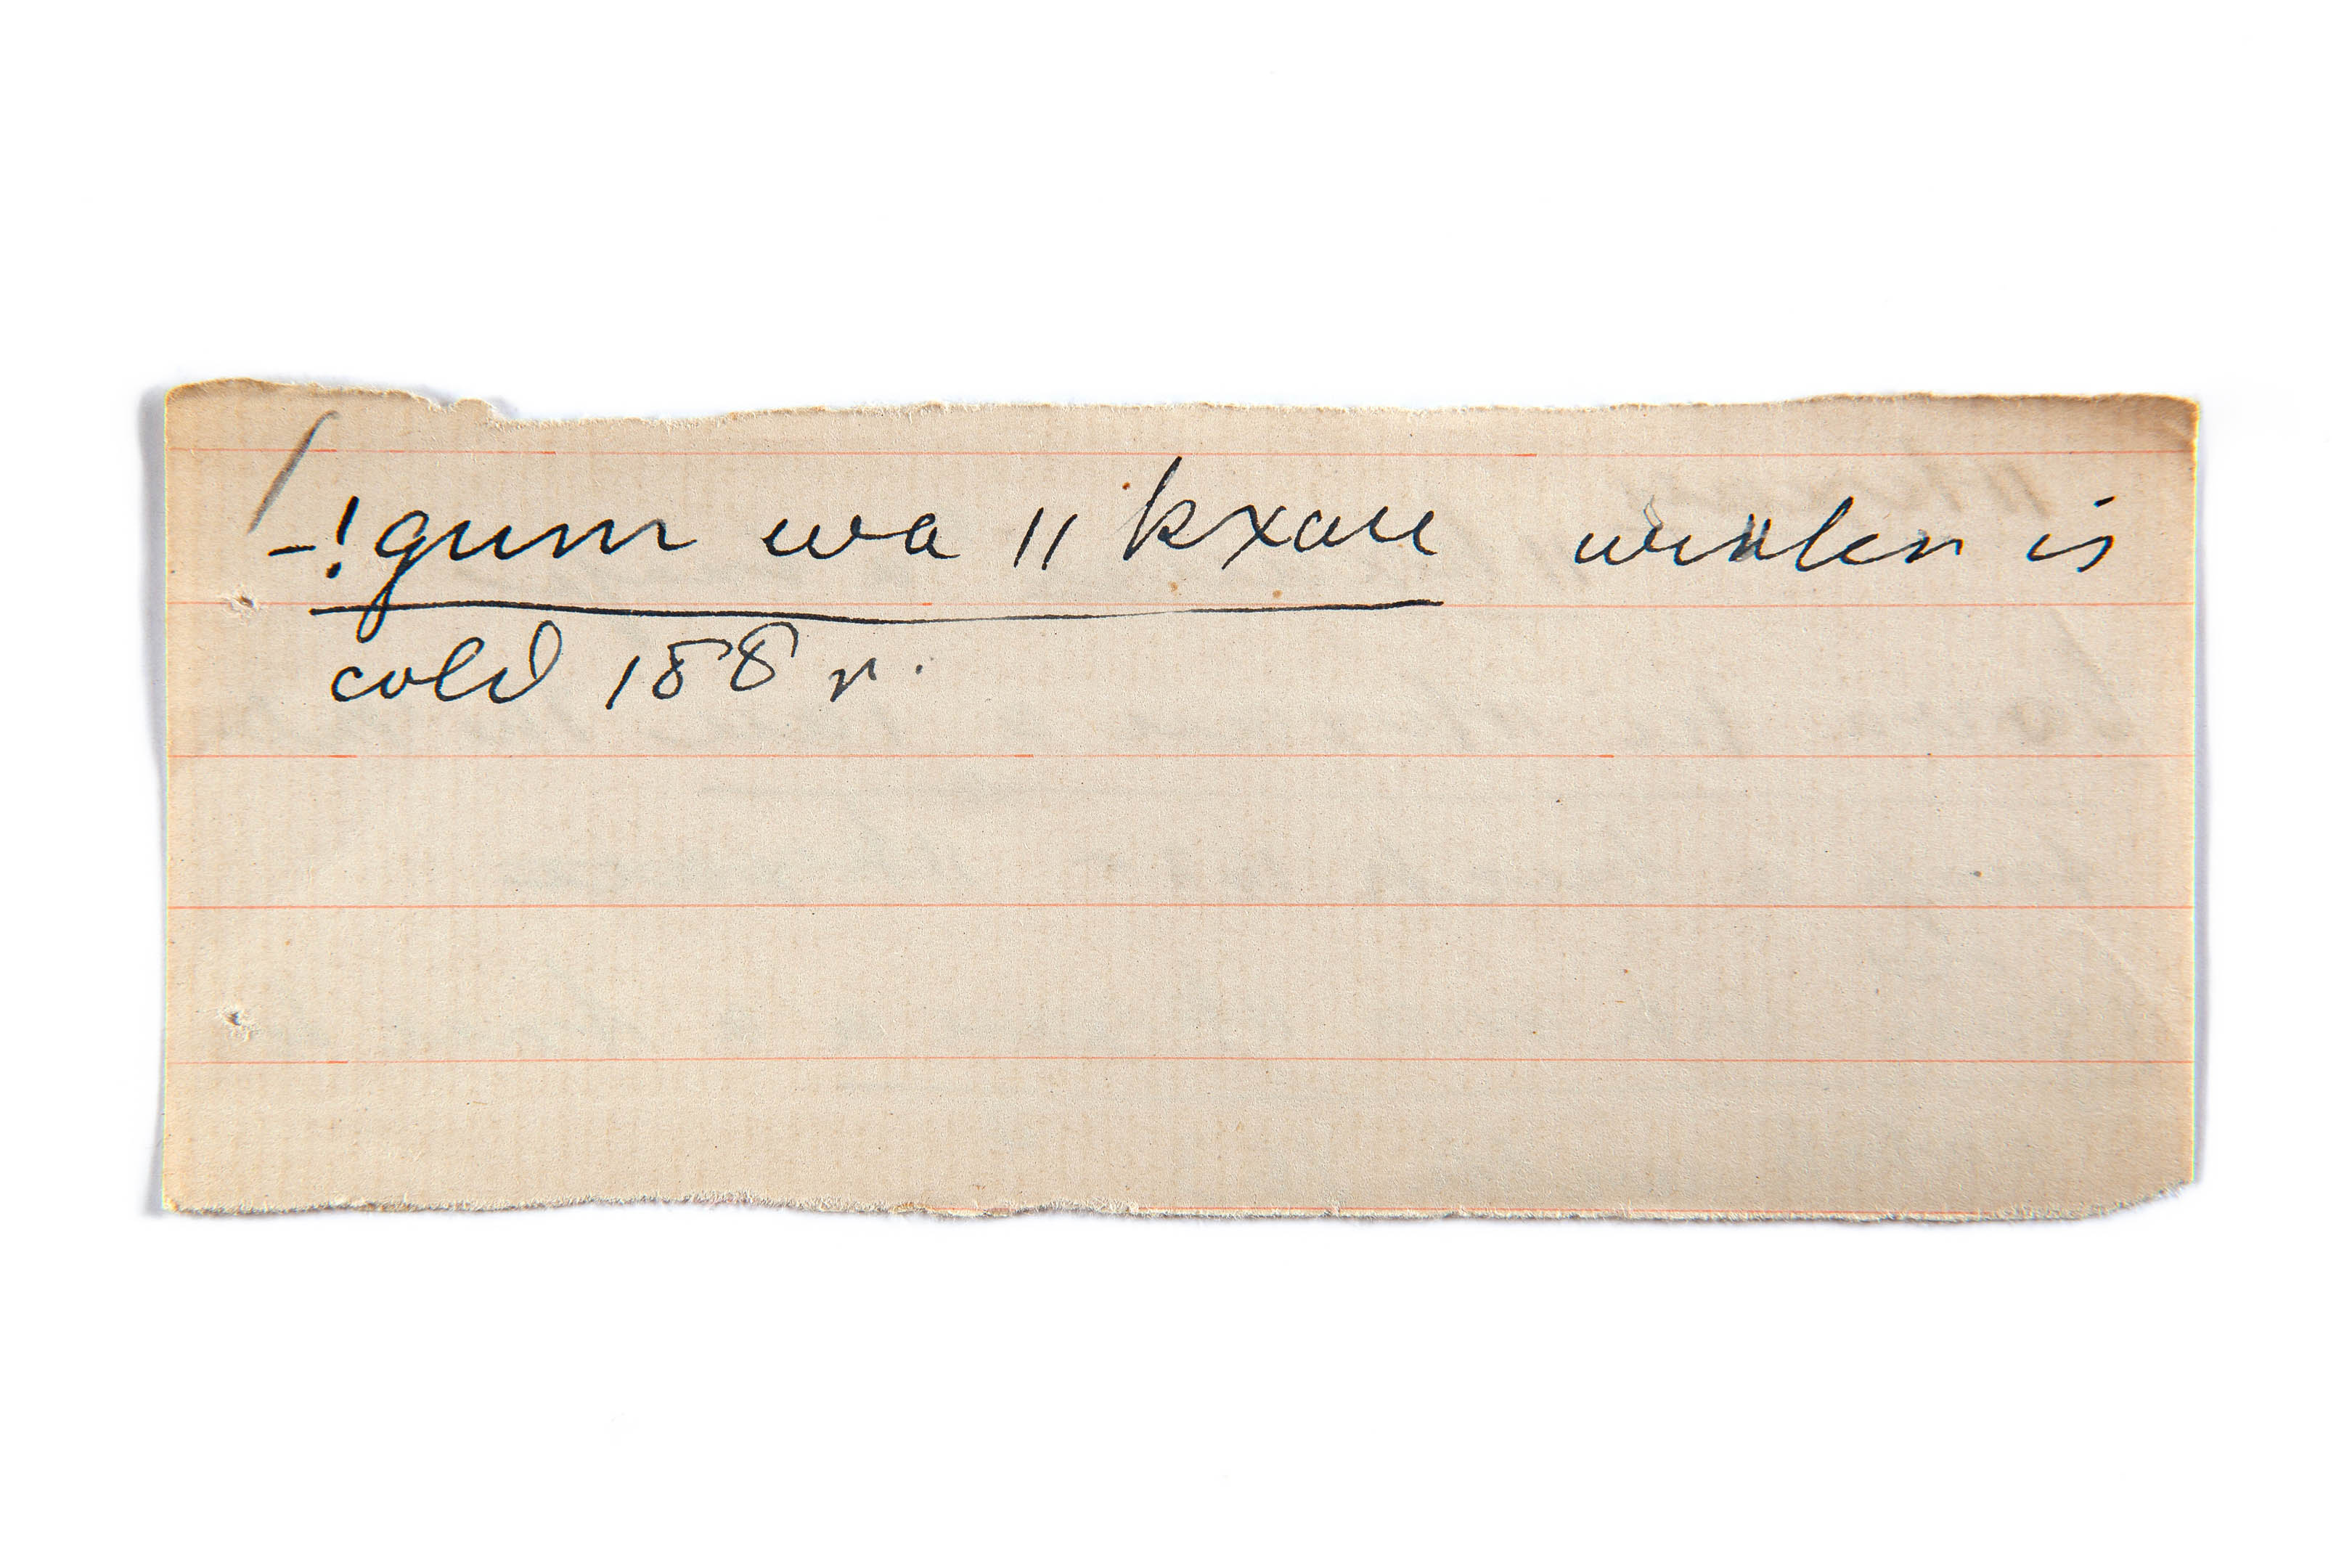 -!gum wa ǁkxau winter is
cold 188 r.